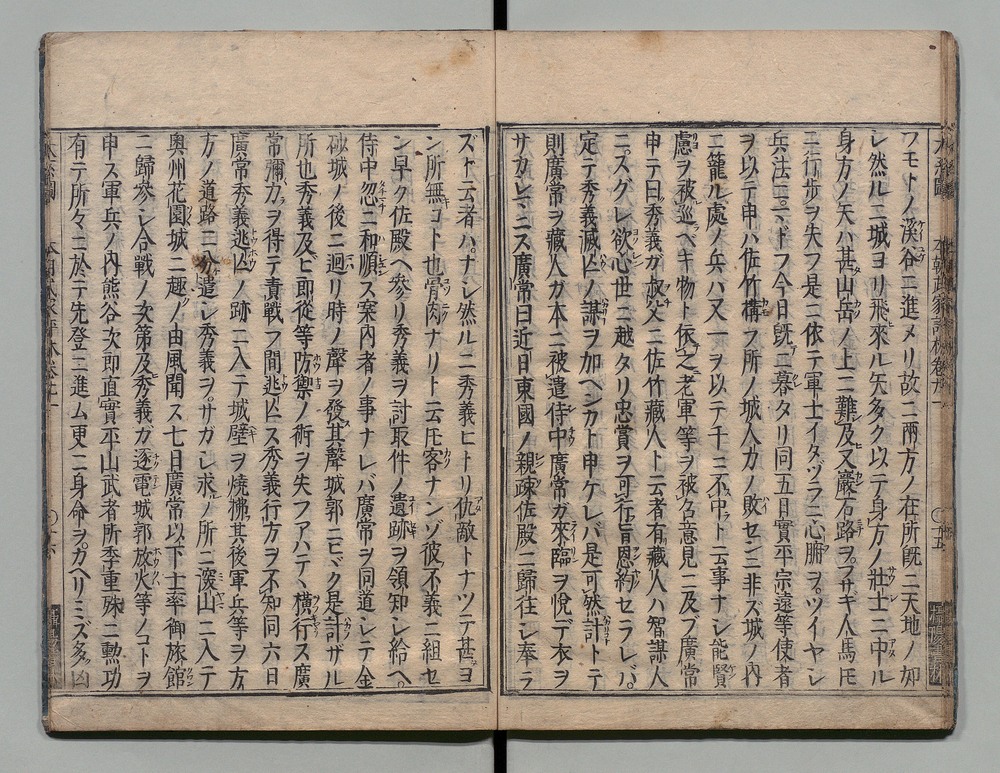 フモトノ溪谷ニ進メリ故ニ兩方ノ在所既ニ天地ノ如
シ然ルニ城ヨリ飛來ル矢多ク以テ身方ノ壯士ニ中ル
身方ノ矢ハ甚タ山岳ノ上ニ難及又巖石路ヲフサキ人馬圧
ニ行歩ヲ失フ是ニ依テ軍士イタヅラニ心腑ヲツイヤシ
兵法ニマドフ今日既ニ暮タリ同五日實平宗遠等使者
ヲ以テ申ハ佐竹構フ所ノ城人力ノ敗センニ非ズ城ノ内
ニ籠ル處ノ兵ハ又一ヲ以テ千ニ不中ト云事ナシ能賢
慮ヲ被巡ヘキ物ト依之老軍等ヲ被召意見ニ及ブ廣常
申テ曰秀義ガ叔父ニ佐竹藏人ト云者有藏人ハ智謀人
ニスグレ欲心世ニ越タリ忠賞ヲ可行旨恩約セラレバ
定テ秀義滅亡ノ謀ヲ加ヘンカト申ケレバ是可然計トテ
則廣常ヲ藏人ガ本ニ被遣侍中廣常カ來臨ヲ悦デ衣ヲ
サカシマニス廣常曰近日東國ノ親疎佐殿ニ歸往シ奉ラ
ズト云者ハナシ然ルニ秀義ヒトリ仇敵トナツテ甚ヨ
ン所無コト也骨肉ナリト云圧客ナンゾ彼不義ニ組セ
ン早ク佐殿ヘ參リ秀義ヲ討取件ノ遺跡ヲ領知シ給ヘ
侍中忽ニ和順ス案内者ノ事ナレバ廣常ヲ同道シテ金
砂城ノ後ニ迴リ時ノ聲ヲ發其聲城郭ニヒヾク是計ザル
所也秀義及ヒ郎從等防禦ノ術ヲ失フアハテヽ横行ス廣
常彌力ヲ得テ責戰フ間逃亡ス秀義行方ヲ不知同六日
廣常秀義逃亡ノ跡ニ入テ城壁ヲ燒拂其後軍兵等ヲ方
方ノ道路ニ分遣シ秀義ヲサガシ求ノ所ニ深山ニ入テ
奧州花園城ニ趣ノ由風聞ス七日廣常以下士率御旅館
ニ歸參シ合戰ノ次第及秀義ガ逐電城郭放火等ノコトヲ
申ス軍兵ノ内熊谷次郎直實平山武者所季重殊ニ勲功
有テ所々ニ於テ先登ニ進ム更ニ身命ヲカヘリミズ多凶